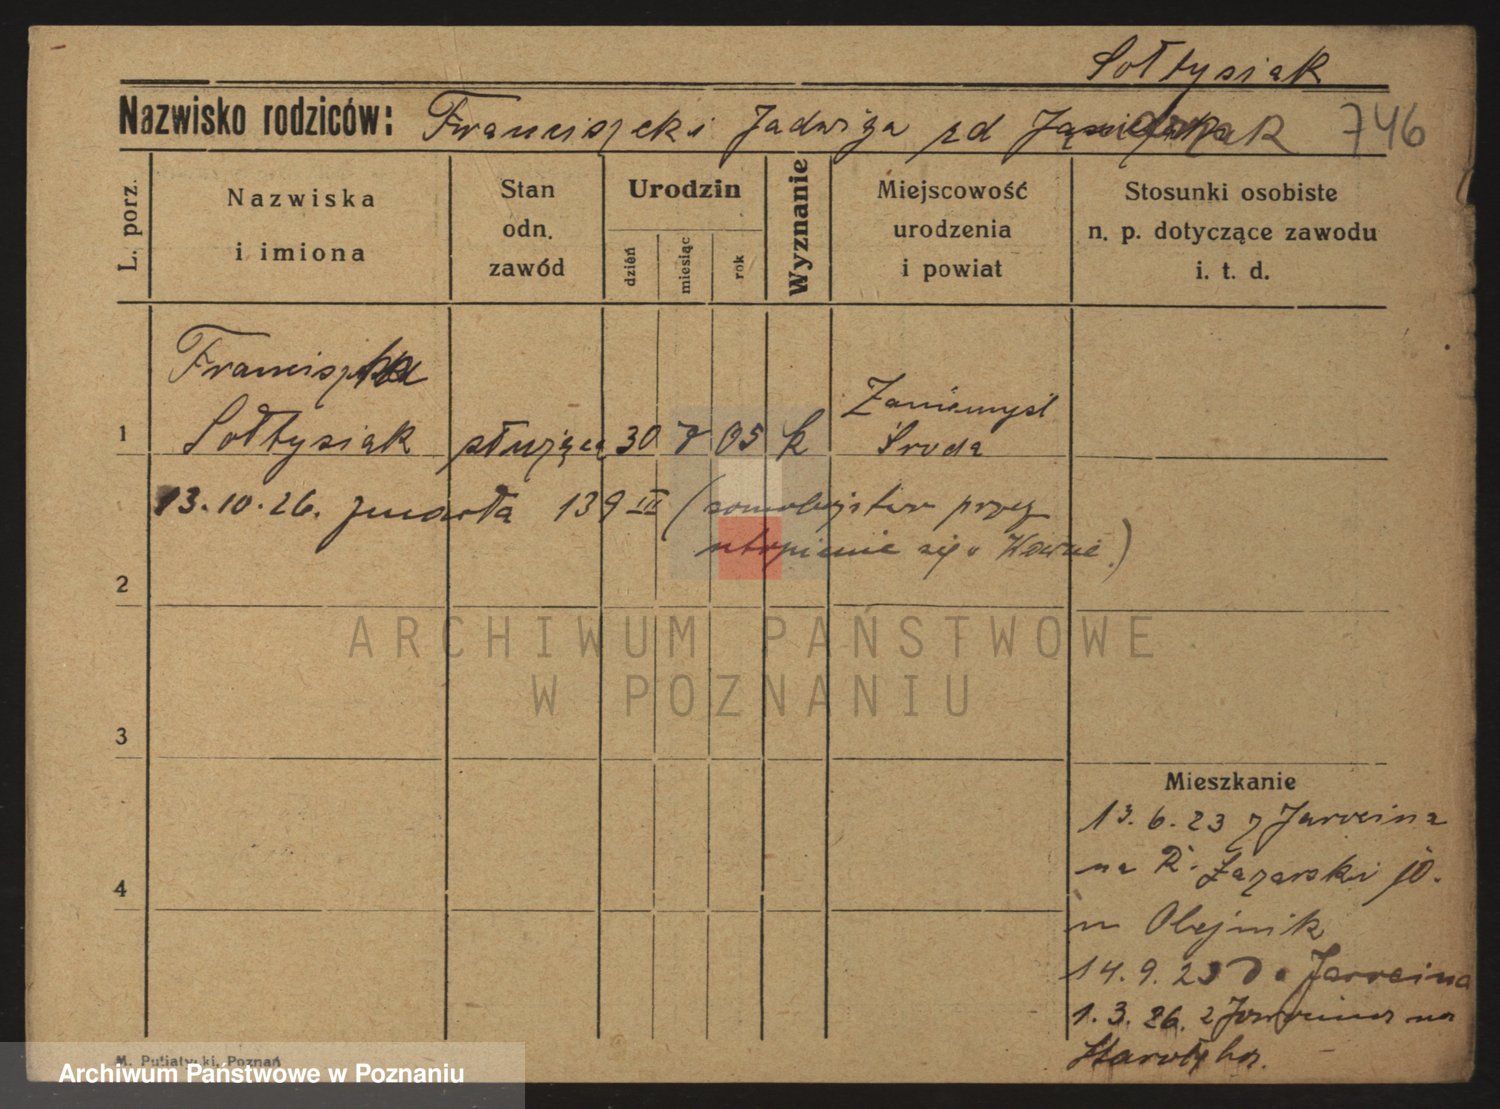 Sołtysiak
Nazwisko rodziców: Franciszek i Jadwiga zd 746
L. porz.
Nazwiska
i imiona
Stan
odn.
zawód
Urodzin
dzień
miesiąc
rok
Wyznanie
Miejscowość
urodzenia
i powiat
Stosunki osobiste
n. p. dotyczące zawodu
i. t. d.
Zaniemyśl
1 Sołtysiak służąca 30 05 k Środa
13.10.26. zmarła 139 III (samobójstwo przez
utopienie się w Warcie.)
2
ARCHIWUM PAŃSTWOWE
W POZNANIU
3
4
Mieszkanie
13.6.23 z Jarocina
na R. Łazarski 10.
u Olejnik
14.9.23 do Jarocina
1.3.26. z Jarocina na
Starołęka.
M. Putiatycki, Poznań
Archiwum Państwowe w Poznaniu